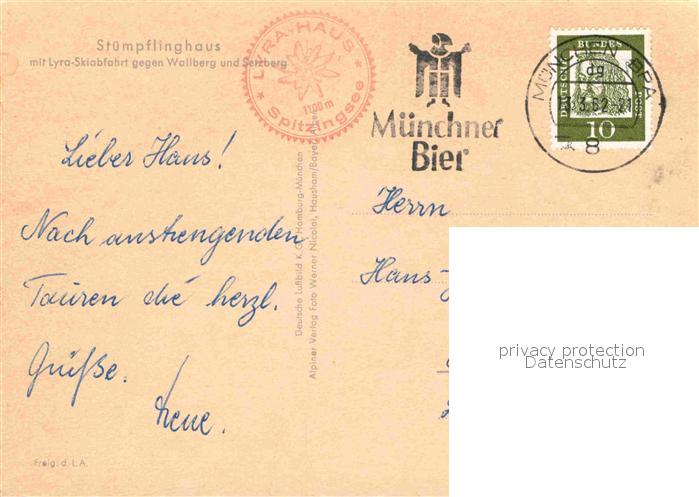 Stümpflinghaus
mit Lyra-Skiabfahrt gegen Wallberg und Setzberg
LYRA-HAUS
1100 m
Spitzingsee
Münchner
Bier
MÜNCHEN BPA
3.62-21
8
DEUTSCHE
BUNDES
POST
10
Lieber Hans!
Nach anstrengenden
Touren die herzl.
Grüße.
Irene.
Freig. d. L.A.
Deutsche Luftbild K.G. Hamburg-München
Alpiner Verlag Foto Werner Nicolai, Hausham/Bayer. Alpen
Herrn
Hans-
privacy protection
Datenschutz